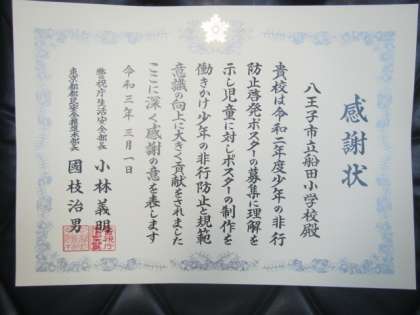 感謝状
八王子市立船田小学校殿
貴校は令和二年度少年の非行
防止啓発ポスターの募集に理解を
示し児童に対しポスターの制作を
働きかけ少年の非行防止と規範
意識の向上に大きく貢献をされました
ここに深く感謝の意を表します
令和三年三月一日
警視庁生活安全部長 小林義明
東京都都民安全推進本部長 國枝治男